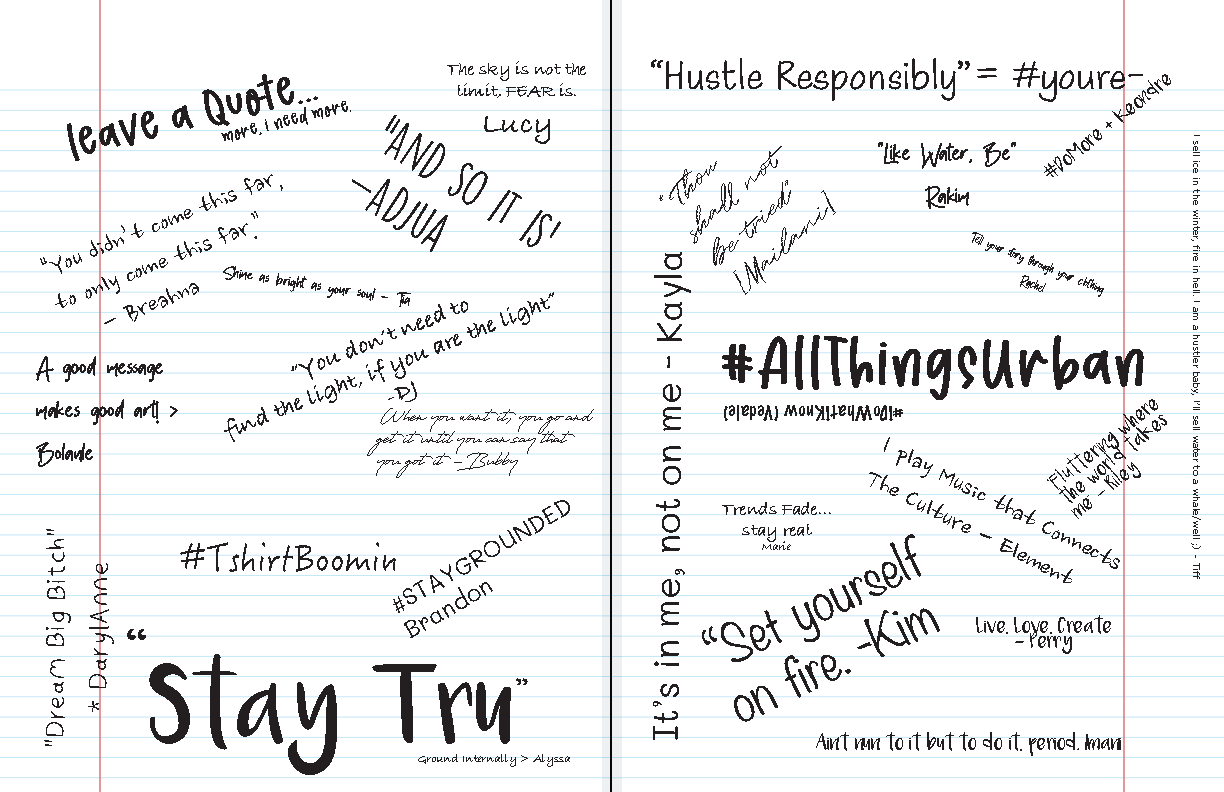 leave a Quote...
more. i need more.
The sky is not the
limit, FEAR is.
Lucy
"AND SO IT IS!
-ADJUA
"You didn't come this far,
to only come this far."
- Breahna
Shine as bright as your soul - Tia
"You don't need to
find the light, if you are the light"
-DJ
A good message
makes good art! >
Bolaule
When you want it, you go and
get it until you can say that
you got it - Bubby
#TshirtBoomin
#STAYGROUNDED
Brandon
"Dream Big Bitch"
* DarylAnne
"Stay Tru"
Ground Internally > Alyssa
"Hustle Responsibly" = #youre-
#DoMore + Keondre
"Like Water, Be"
Rakim
"Thou
shall not
be tried"
[Mailani]
Tell your story through your clothing
Rachel
I sell ice in the winter, fire in hell. I am a hustler baby, I'll sell water to a whale/well ;) - Tiff
It's in me, not on me - Kayla
#AllThingsUrban
#iDoWhatiKnow (Vedale)
'Fluttering where
the world takes
me' - Riley
I Play Music that Connects
The Culture - Element
Trends Fade...
stay real
Marie
"Set yourself
on fire. -Kim
Live. Love. Create
- Perry
Aint nun to it but to do it. period. Imani